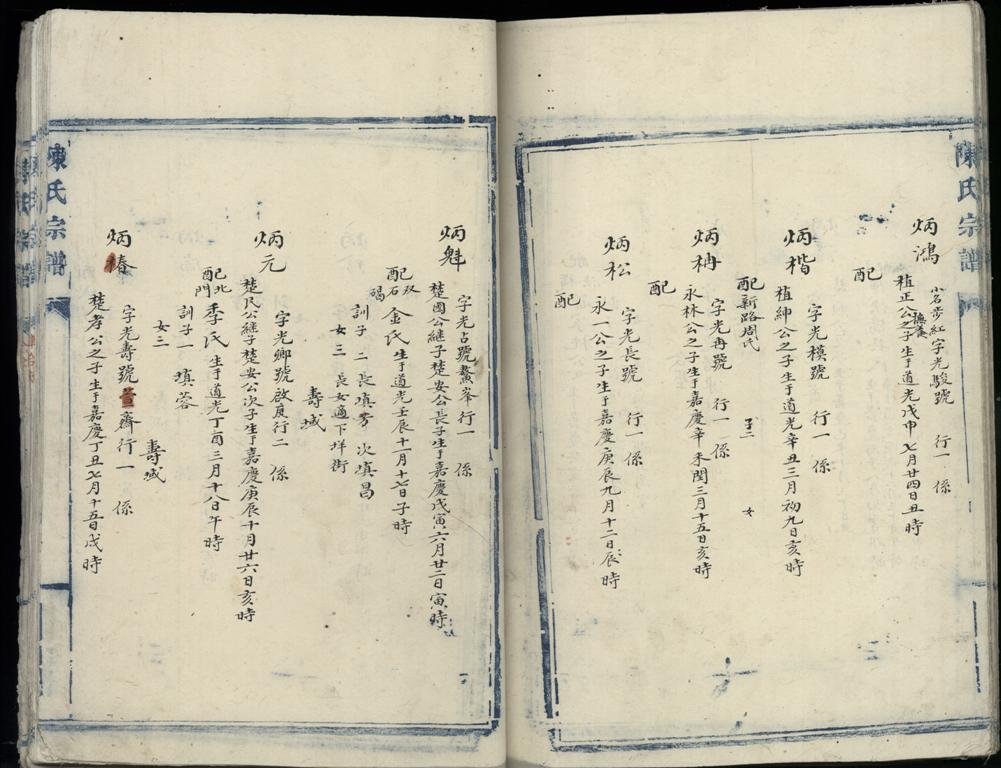 陳氏宗譜
炳鴻
小名步紅字光駿號 行一 係
植正公之撫養子生于道光戊申七月廿四日丑時
配
炳楷
字光模號 行一 係
植紳公之子生于道光辛丑三月初九日亥時
配新路周氏 子二 女
炳冉
字光冉號 行一 係
永林公之子生于嘉慶辛未閏三月十五日亥時
配
炳松
字光長號 行一 係
永一公之子生于嘉慶庚辰九月十二日辰時
配
炳魁
字光占號鰲峯 行一 係
楚國公繼子楚安公長子生于嘉慶戊寅六月廿二日寅時
配双石碣金氏生于道光壬辰十一月十七日子時
訓子二 長填芳 次填昌
女三 長女適下垟街
壽域
炳元
字光卿號啟良行二 係
楚民公繼子楚安公次子生于嘉慶庚辰十月廿六日亥時
配北門季氏生于道光丁酉三月十八日午時
訓子一 填蓉
女三
壽域
炳椿
字光壽號萱齋行一 係
楚孝公之子生于嘉慶丁丑七月十五日戌時
陳氏宗譜